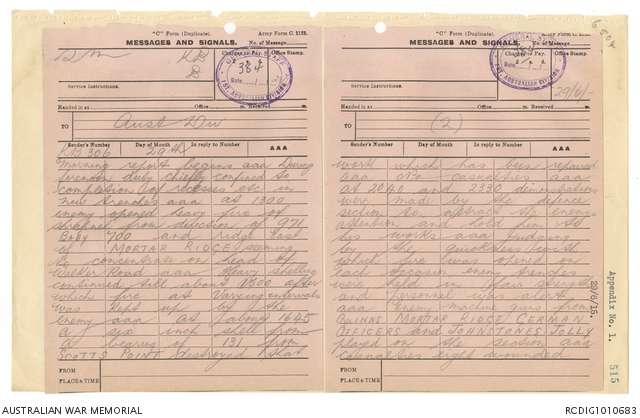 "C" Form (Duplicate). Army Form C. 2123.
MESSAGES AND SIGNALS. No. of Message
Charges to Pay. Office Stamp.
384
Service Instructions.
Handed in at Office m. Received m.
TO Aust Div
Sender's Number Day of Month In reply to Number AAA
KB 306 29th
Morning report begins aaa During
forenoon duty chiefly confined to
completion of recesses etc in
new trenches aaa at 1300
enemy opened heavy fire of
shrapnel from direction of 971
Baby 700 and ridge East
of MORTAR RIDGE seeming
to concentrate on head of
Walker Road aaa Heavy shelling
continued till about 1500 after
which fire at varying intervals
was kept up by the
enemy aaa at about 1645
a six inch shell from
a bearing of 131 from
SCOTTS POINT destroyed
FROM
PLACE & TIME
"C" Form (Duplicate). Army Form C. 2123.
MESSAGES AND SIGNALS. No. of Message
Charges to Pay. Office Stamp.
384
29/6/-
Service Instructions.
Handed in at Office m. Received m.
TO (2)
Sender's Number Day of Month In reply to Number AAA
work which has been repaired
aaa No casualties aaa
at 2040 and 2330 demonstrations
were made by the defence
section to attract the enemys
attention and hold him to
his works aaa Judging
by the quickness with
which fire was opened on
each occasion enemy trenches
were held in fair strength
and personnel was alert
aaa Enemy machine guns from
MORTAR RIDGE GERMAN
OFFICERS and JOHNSTONES JOLLY
played on the section aaa
casualties eight wounded
FROM
PLACE & TIME
29/6/15.
Appendix No. 1.
515
AUSTRALIAN WAR MEMORIAL
RCDIG1010683